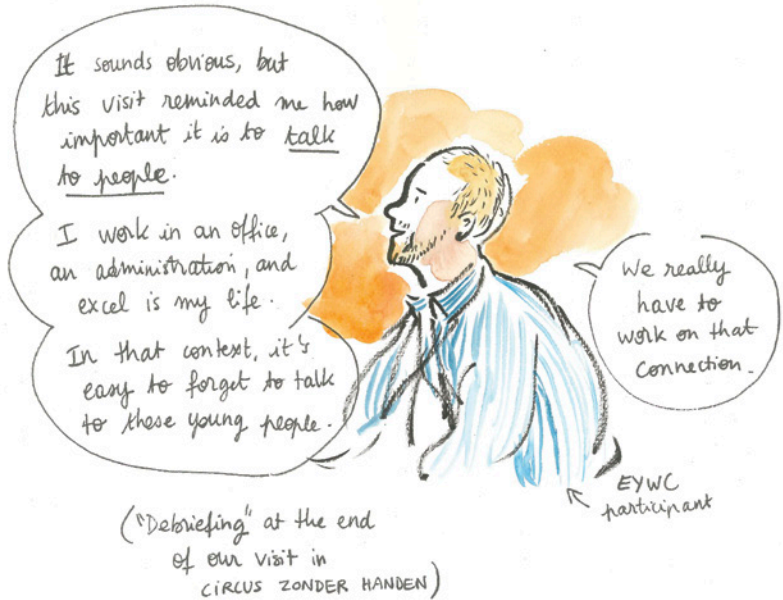 It sounds obvious, but
this visit reminded me how
important it is to talk
to people.
I work in an office,
an administration, and
excel is my life.
In that context, it's
easy to forget to talk
to these young people.
We really
have to
work on that
connection.
EYWC
participant
("Debriefing" at the end
of our visit in
CIRCUS ZONDER HANDEN)